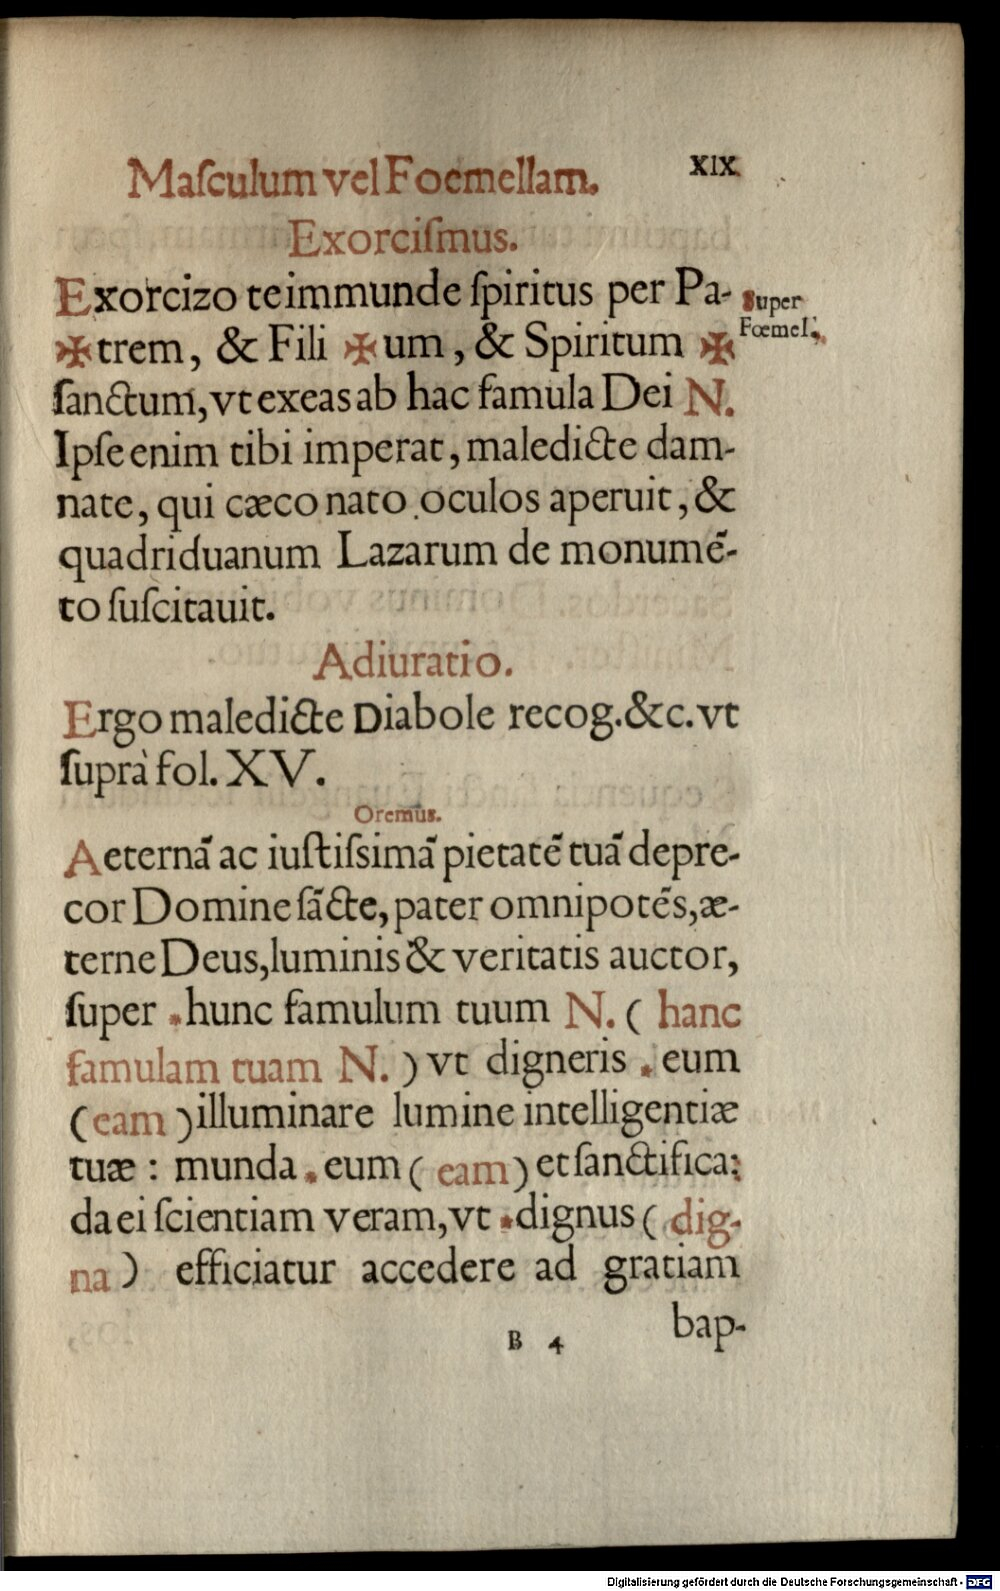 Maſculum vel Foemellam. XIX.
Exorciſmus.
Exorcizo te immunde ſpiritus per Pa-
✠ trem, & Fili ✠ um, & Spiritum ✠
Super
Fœmel.
ſanctum, vt exeas ab hac famula Dei N.
Ipſe enim tibi imperat, maledicte dam-
nate, qui cæco nato oculos aperuit, &
quadriduanum Lazarum de monumẽ-
to ſuſcitauit.
Adiuratio.
Ergo maledicte Diabole recog. &c. vt
ſuprà fol. XV.
Oremus.
Aeternã ac iuſtiſsimã pietatẽ tuã depre-
cor Domine ſãcte, pater omnipotẽs, æ-
terne Deus, luminis & veritatis auctor,
ſuper * hunc famulum tuum N. ( hanc
famulam tuam N. ) vt digneris * eum
( eam ) illuminare lumine intelligentiæ
tuæ : munda * eum ( eam ) et ſanctifica:
da ei ſcientiam veram, vt * dignus ( dig-
na ) efficiatur accedere ad gratiam
B 4 bap-
Digitalisierung gefördert durch die Deutsche Forschungsgemeinschaft - DFG